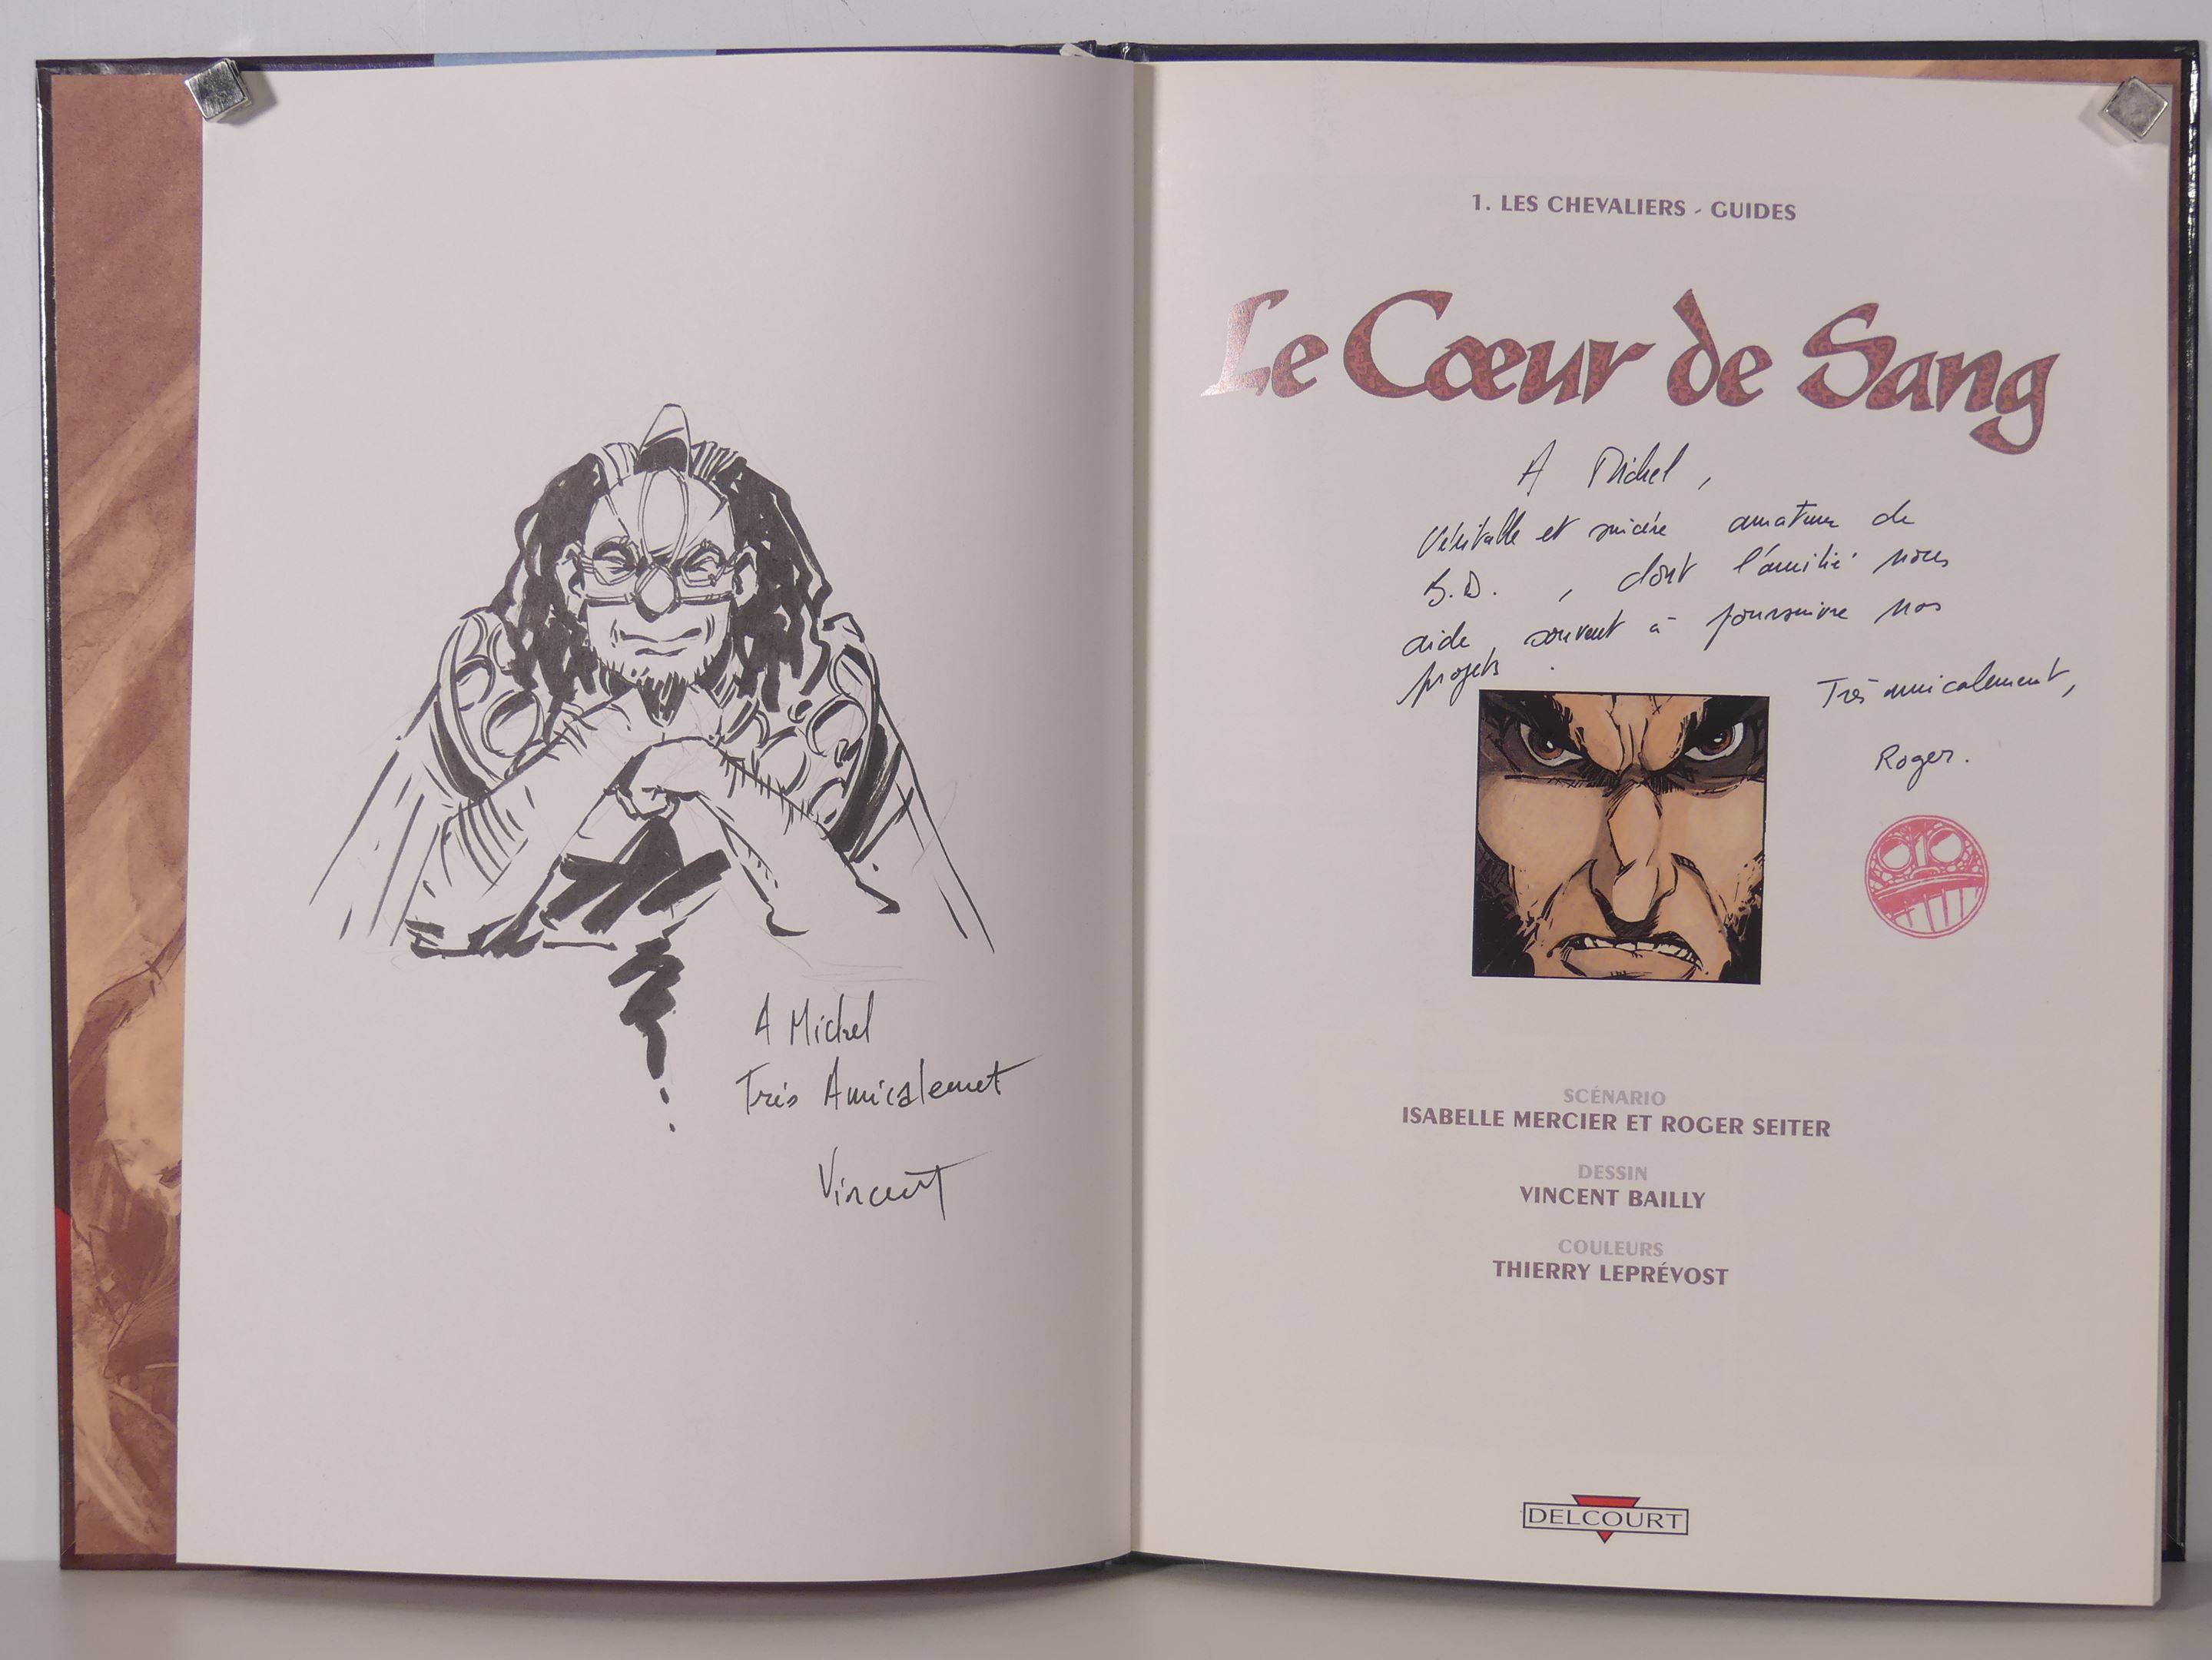 A Michel
Très Amicalemet
Vincent
1. LES CHEVALIERS - GUIDES
Le Cœur de Sang
A Michel,
Véritable et sincère amateur de
B.D. , dont l'amitié nous
aide souvent à poursuivre nos
projets.
Très amicalement,
Roger.
SCÉNARIO
ISABELLE MERCIER ET ROGER SEITER
DESSIN
VINCENT BAILLY
COULEURS
THIERRY LEPRÉVOST
DELCOURT